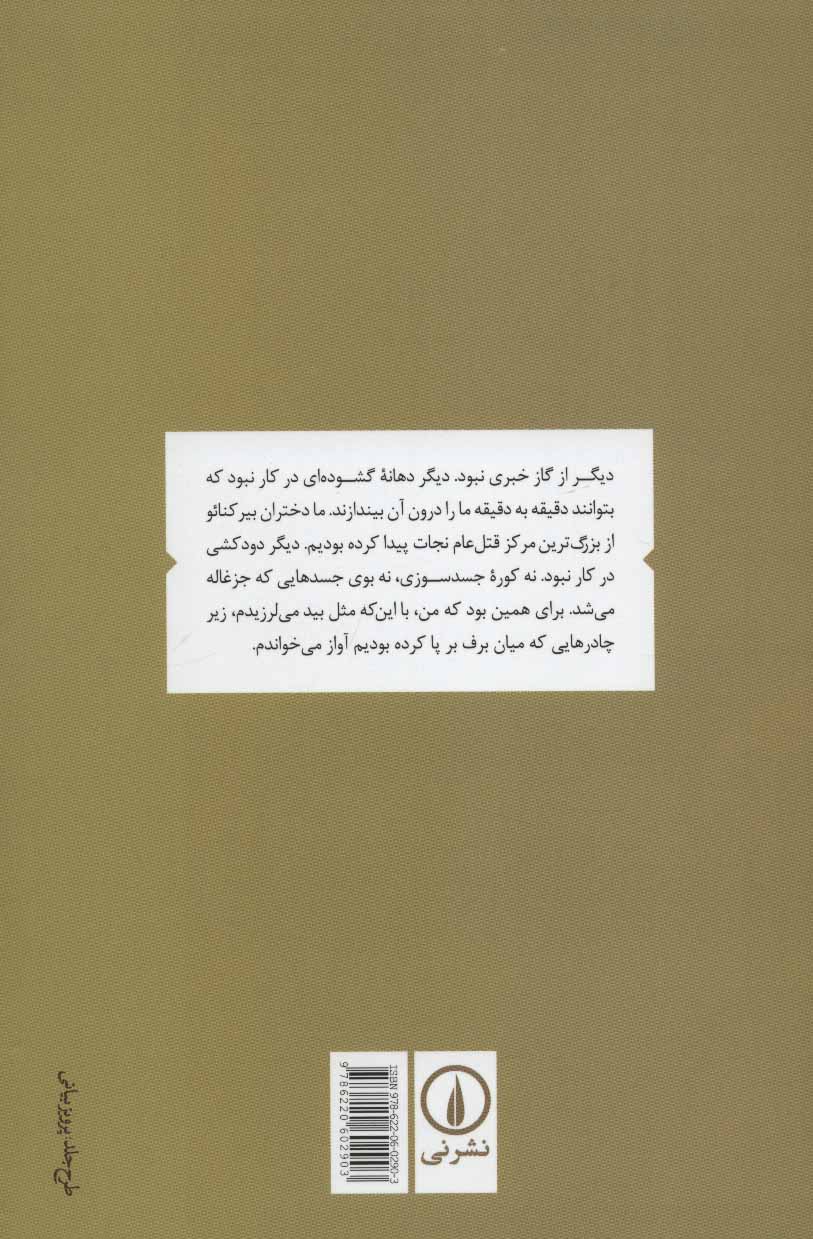 دیگر از گاز خبری نبود. دیگر دهانهٔ گشوده‌ای در کار نبود که
بتوانند دقیقه به دقیقه ما را درون آن بیندازند. ما دختران بیرکنائو
از بزرگ‌ترین مرکز قتل‌عام نجات پیدا کرده بودیم. دیگر دودکشی
در کار نبود. نه کورهٔ جسدسوزی، نه بوی جسدهایی که جزغاله
می‌شد. برای همین بود که من، با این‌که مثل بید می‌لرزیدم، زیر
چادرهایی که میان برف بر پا کرده بودیم آواز می‌خواندم.
نشرنی
ISBN 978-622-06-0290-3
9 786220 602903
طرح جلد: پرویز بیانی